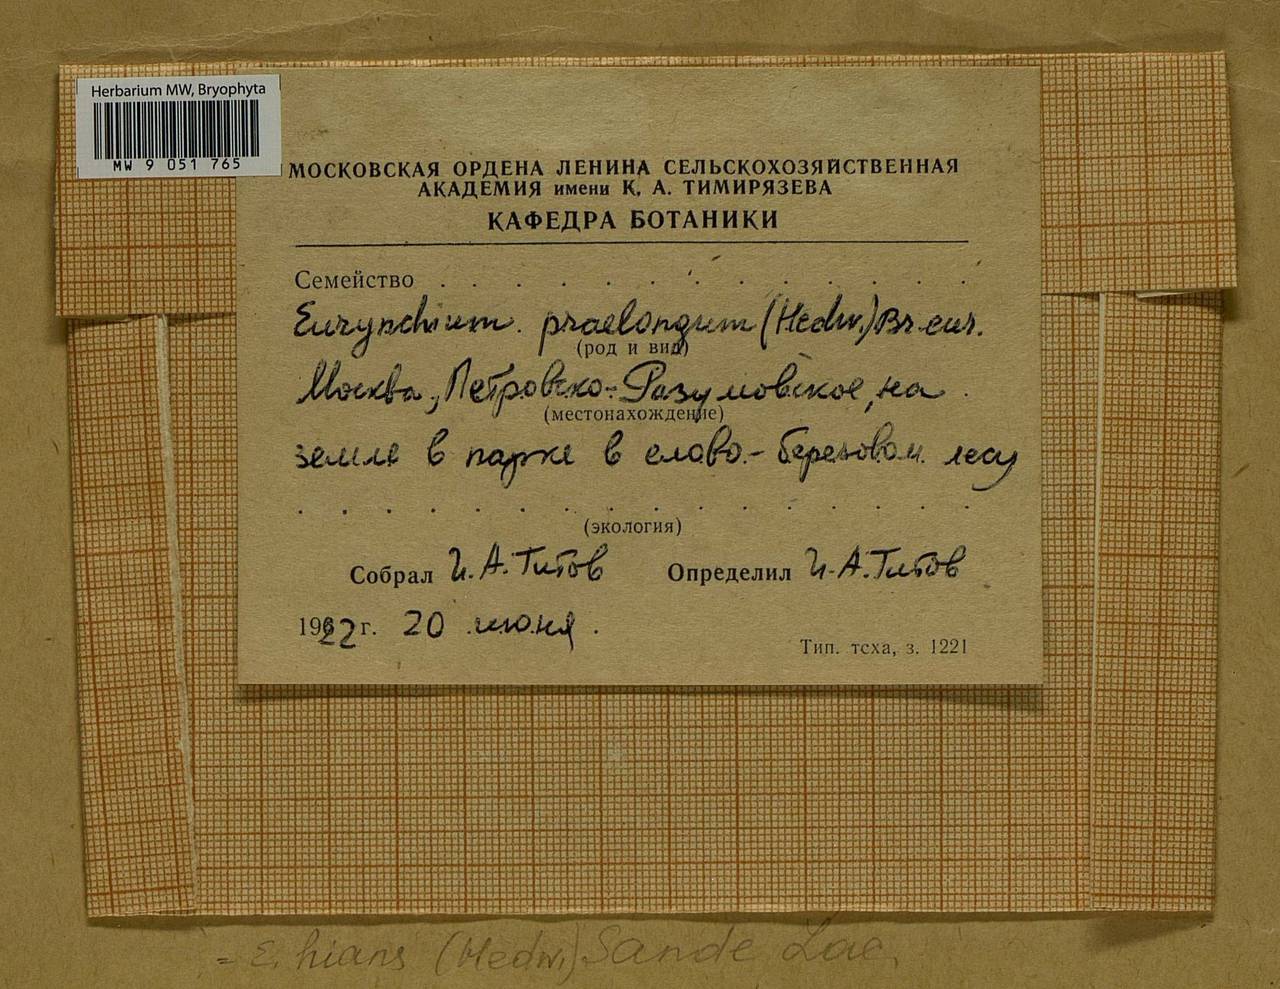 Herbarium MW, Bryophyta
MW 9 051 765
МОСКОВСКАЯ ОРДЕНА ЛЕНИНА СЕЛЬСКОХОЗЯЙСТВЕННАЯ
АКАДЕМИЯ имени К. А. ТИМИРЯЗЕВА
КАФЕДРА БОТАНИКИ
Семейство . . . . . . . . . . . . .
Eurynchium praelongum (Hedw.) Br. eur.
(род и вид)
Москва, Петровско-Разумовское, на
(местонахождение)
земле в парке в елово-березовом лесу
(экология)
Собрал И. А. Титов Определил И. А. Титов
1922 г. 20 июня.
Тип. тсха, з. 1221
= E. hians (Hedw.) Sande Lac.